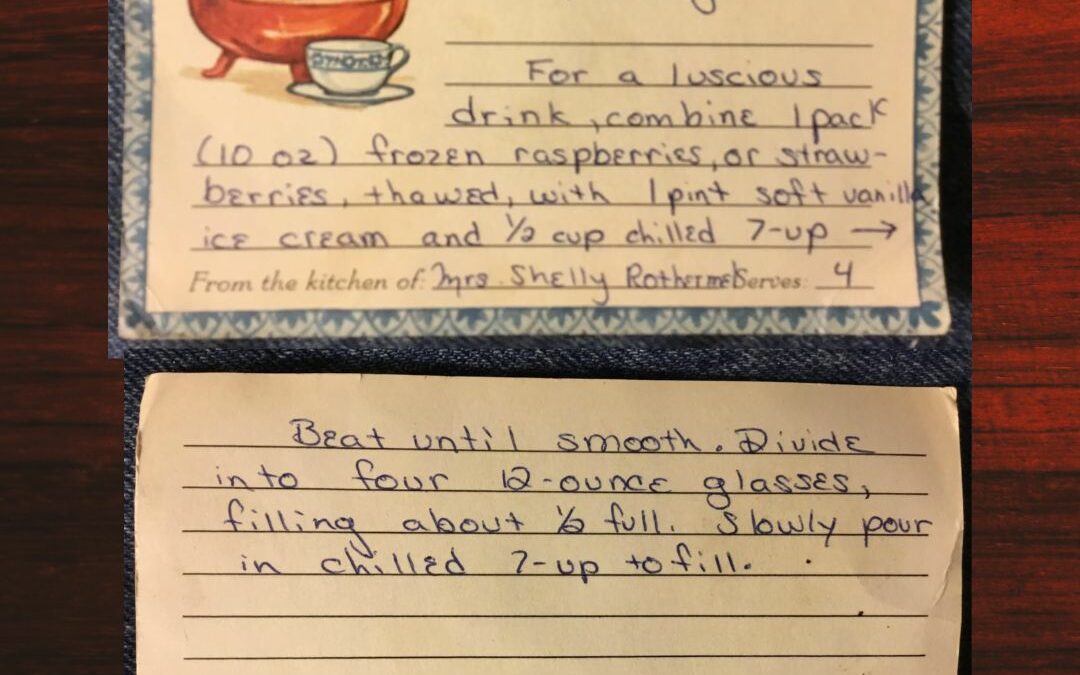 For a luscious
drink, combine 1 pack
(10 oz) frozen raspberries, or straw-
berries, thawed, with 1 pint soft vanilla
ice cream and ½ cup chilled 7-up →
From the kitchen of: Mrs. Shelly Rothermel Serves: 4
Beat until smooth. Divide
into four 12-ounce glasses,
filling about ½ full. Slowly pour
in chilled 7-up to fill.